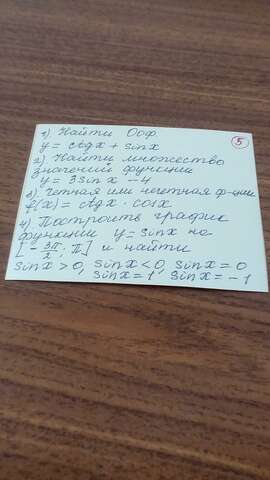 1) Найти Ооф.
y = ctgx + sinx
2) Найти множество
значений функции
y = 3sinx - 4
3) Четная или нечетная ф-ции
f(x) = ctgx · cosx
4) Построить график
функции y = sinx на
[-3π/2; π] и найти
sinx > 0, sinx < 0, sinx = 0
sinx = 1, sinx = -1
5